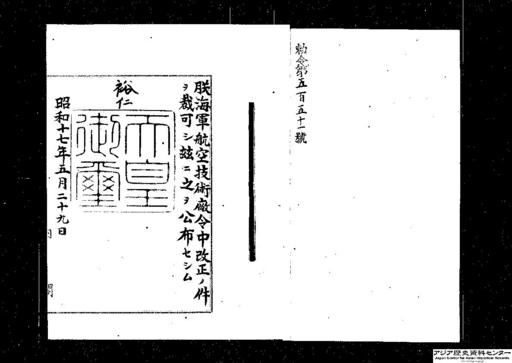 勅令第五百五十一號
朕海軍航空技術廠令中改正ノ件
ヲ裁可シ玆ニ之ヲ公布セシム
裕仁
天皇御璽
昭和十七年五月二十九日
内閣
アジア歴史資料センター
Japan Center for Asian Historical Records